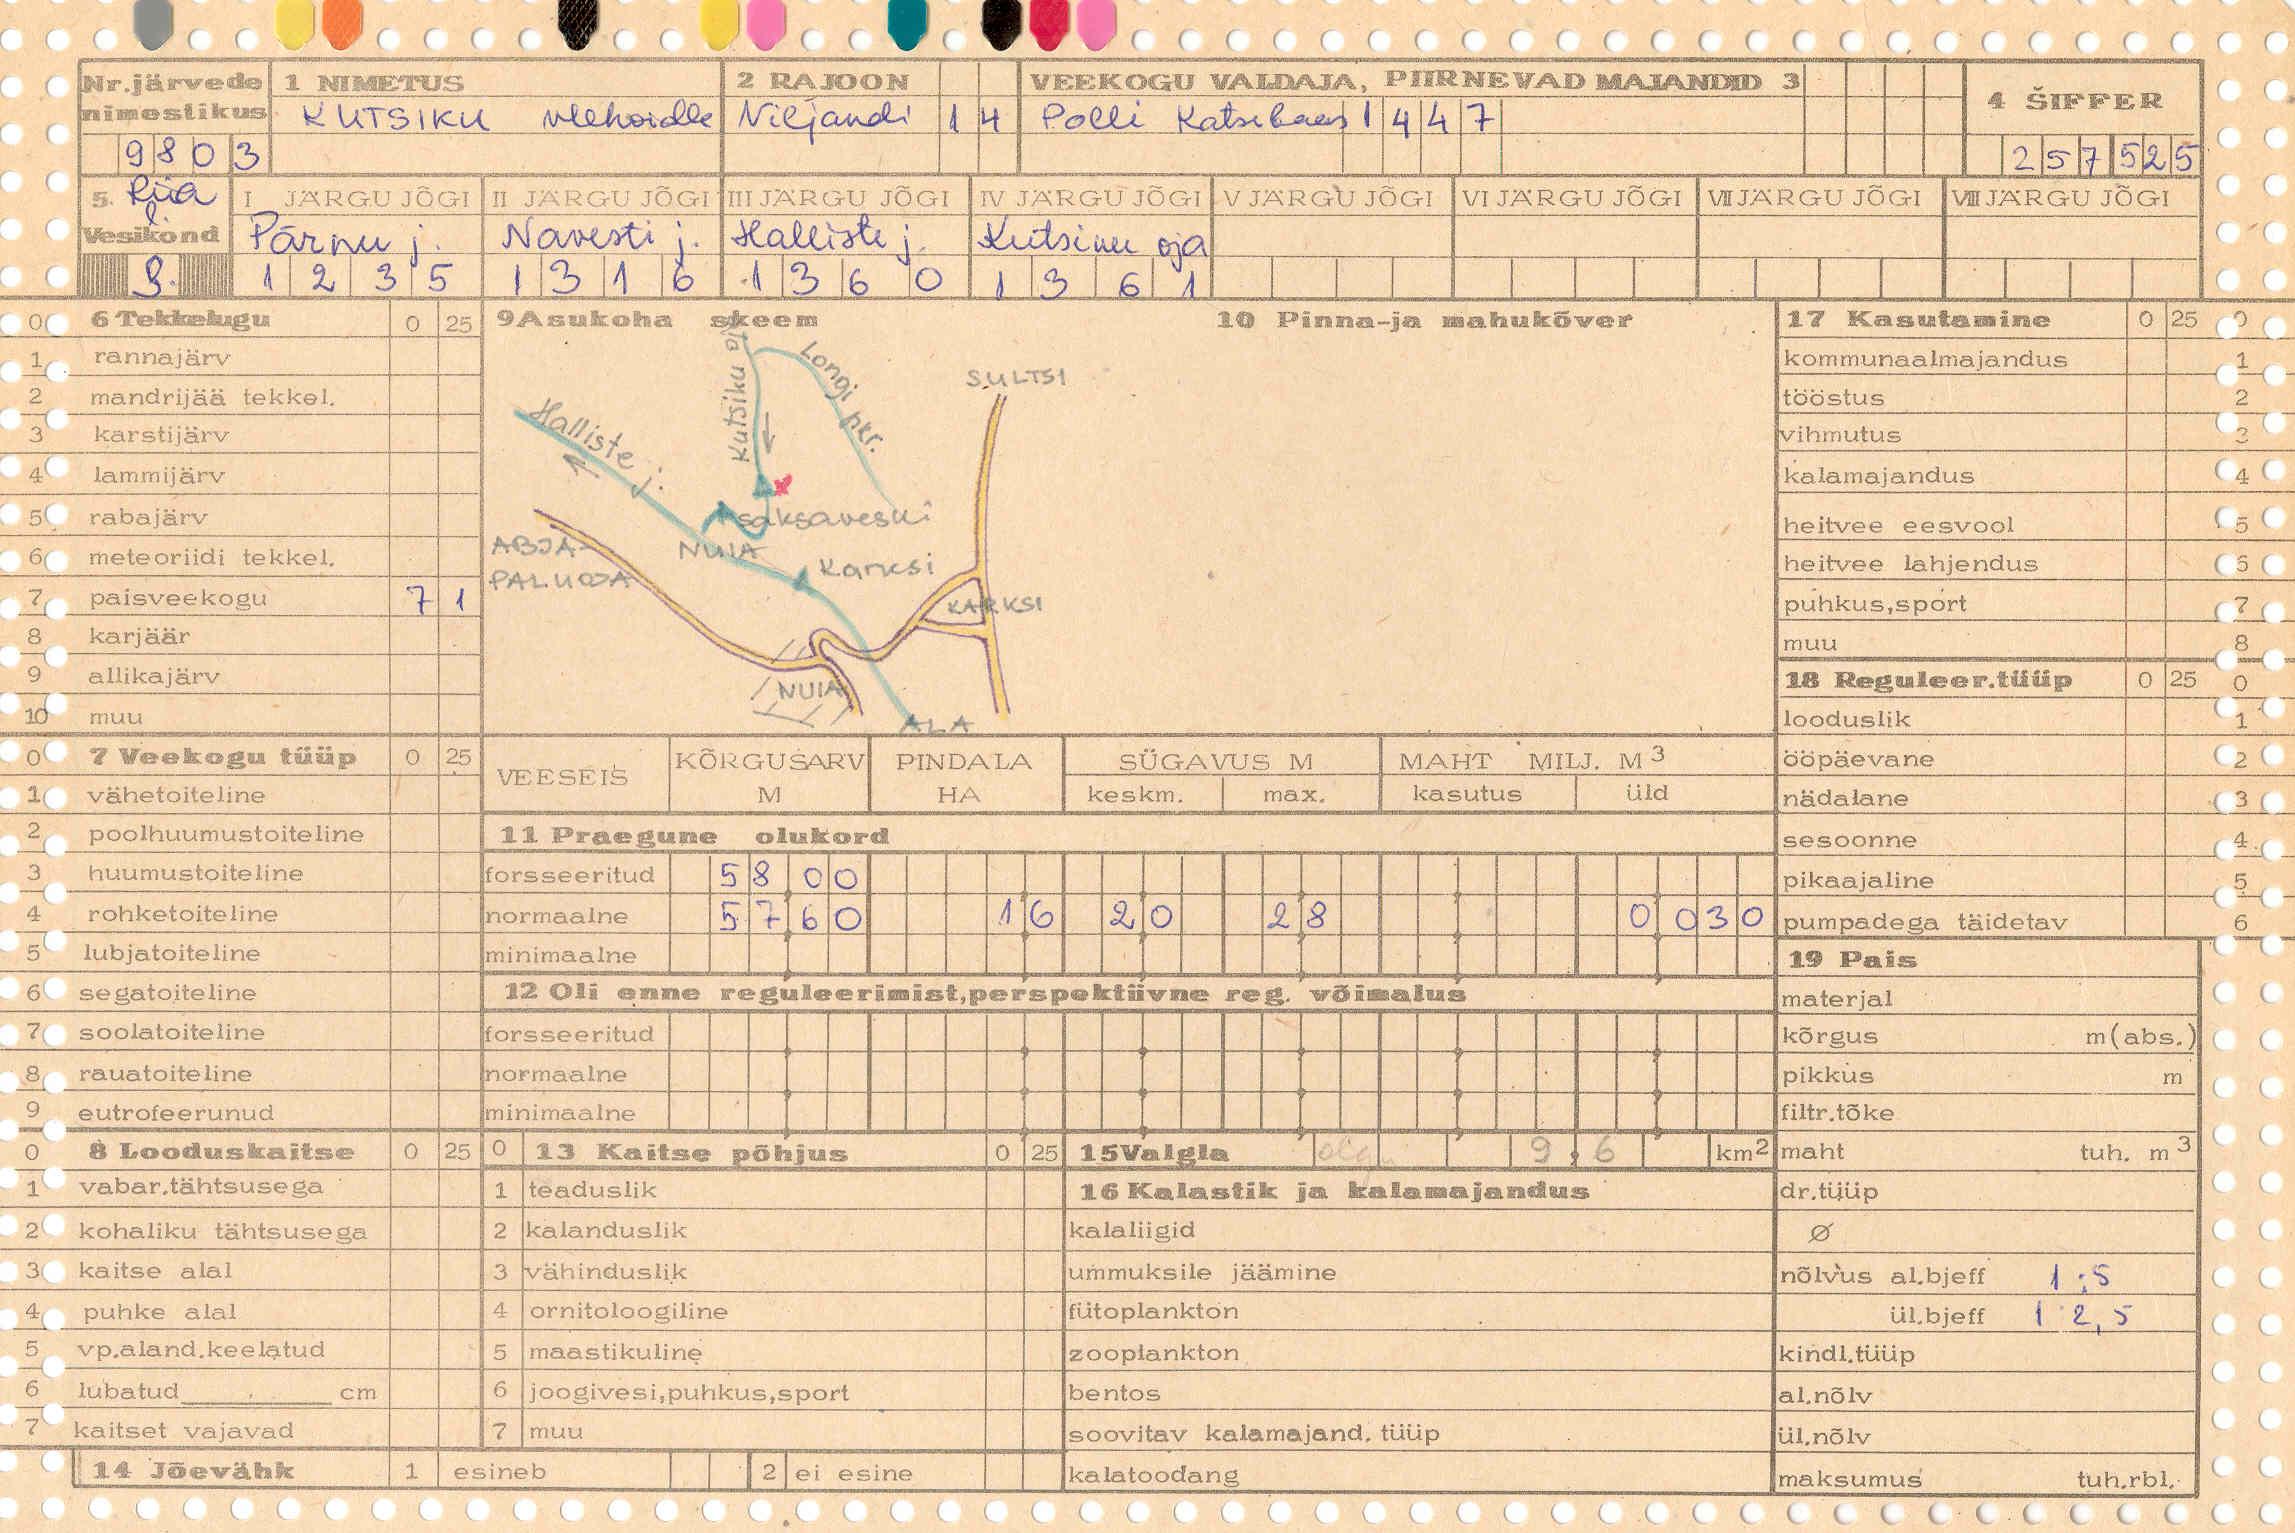 Nr.järvede nimestikus
9803
1 NIMETUS
KUTSIKU
2 RAJOON
Viljandi 14
VEEKOGU VALDAJA, PIIRNEVAD MAJANDID 3
Polli Katsebaas 1447
4 ŠIFFER
257525
5. Riia l. Vesikond
9.
I JÄRGU JÕGI
Pärnu j.
1235
II JÄRGU JÕGI
Navesti j.
1316
III JÄRGU JÕGI
Halliste j.
1360
IV JÄRGU JÕGI
Kutsiku oja
1361
V JÄRGU JÕGI
VI JÄRGU JÕGI
VII JÄRGU JÕGI
VIII JÄRGU JÕGI
0 6 Tekkelugu 0 25
1 rannajärv
2 mandrijää tekkel.
3 karstijärv
4 lammijärv
5 rabajärv
6 meteoriidi tekkel.
7 paisveekogu 7 1
8 karjäär
9 allikajärv
10 muu
0 7 Veekogu tüüp 0 25
1 vähetoiteline
2 poolhuumustoiteline
3 huumustoiteline
4 rohketoiteline
5 lubjatoiteline
6 segatoiteline
7 soolatoiteline
8 rauatoiteline
9 eutrofeerunud
0 8 Looduskaitse 0 25
1 vabar.tähtsusega
2 kohaliku tähtsusega
3 kaitse alal
4 puhke alal
5 vp.aland.keelatud
6 lubatud cm
7 kaitset vajavad
14 Jõevähk 1 esineb 2 ei esine
9 Asukoha skeem
Kutsiku oja
Longi pkr.
SULTSI
Halliste j.
Saksaveski
NUIA
ABJA-
PALUOJA
Karksi
KARKSI
NUIA
ALA
10 Pinna-ja mahukõver
VEESEIS
KÕRGUSARV M
PINDALA HA
SÜGAVUS M
keskm. max.
MAHT MILJ. M3
kasutus üld
11 Praegune olukord
forsseeritud 58 00
normaalne 57 60 16 20 28 0 030
minimaalne
12 Oli enne reguleerimist,perspektiivne reg. võimalus
forsseeritud
normaalne
minimaalne
0 13 Kaitse põhjus 0 25
1 teaduslik
2 kalanduslik
3 vähinduslik
4 ornitoloogiline
5 maastikuline
6 joogivesi,puhkus,sport
7 muu
15 Valgla 9,6 km2
16 Kalastik ja kalamajandus
kalaliigid
ummuksile jäämine
fütoplankton
zooplankton
bentos
soovitav kalamajand. tüüp
kalatoodang
17 Kasutamine 0 25 0
kommunaalmajandus 1
tööstus 2
vihmutus 3
kalamajandus 4
heitvee eesvool 5
heitvee lahjendus 6
puhkus,sport 7
muu 8
18 Reguleer.tüüp 0 25 0
looduslik 1
ööpäevane 2
nädalane 3
sesoonne 4
pikaajaline 5
pumpadega täidetav 6
19 Pais
materjal
kõrgus m(abs.)
pikkus m
filtr.tõke
maht tuh. m3
dr.tüüp
Ø
nõlvus al.bjeff 1:5
ül.bjeff 1 2,5
kindl.tüüp
al.nõlv
ül.nõlv
maksumus tuh.rbl.